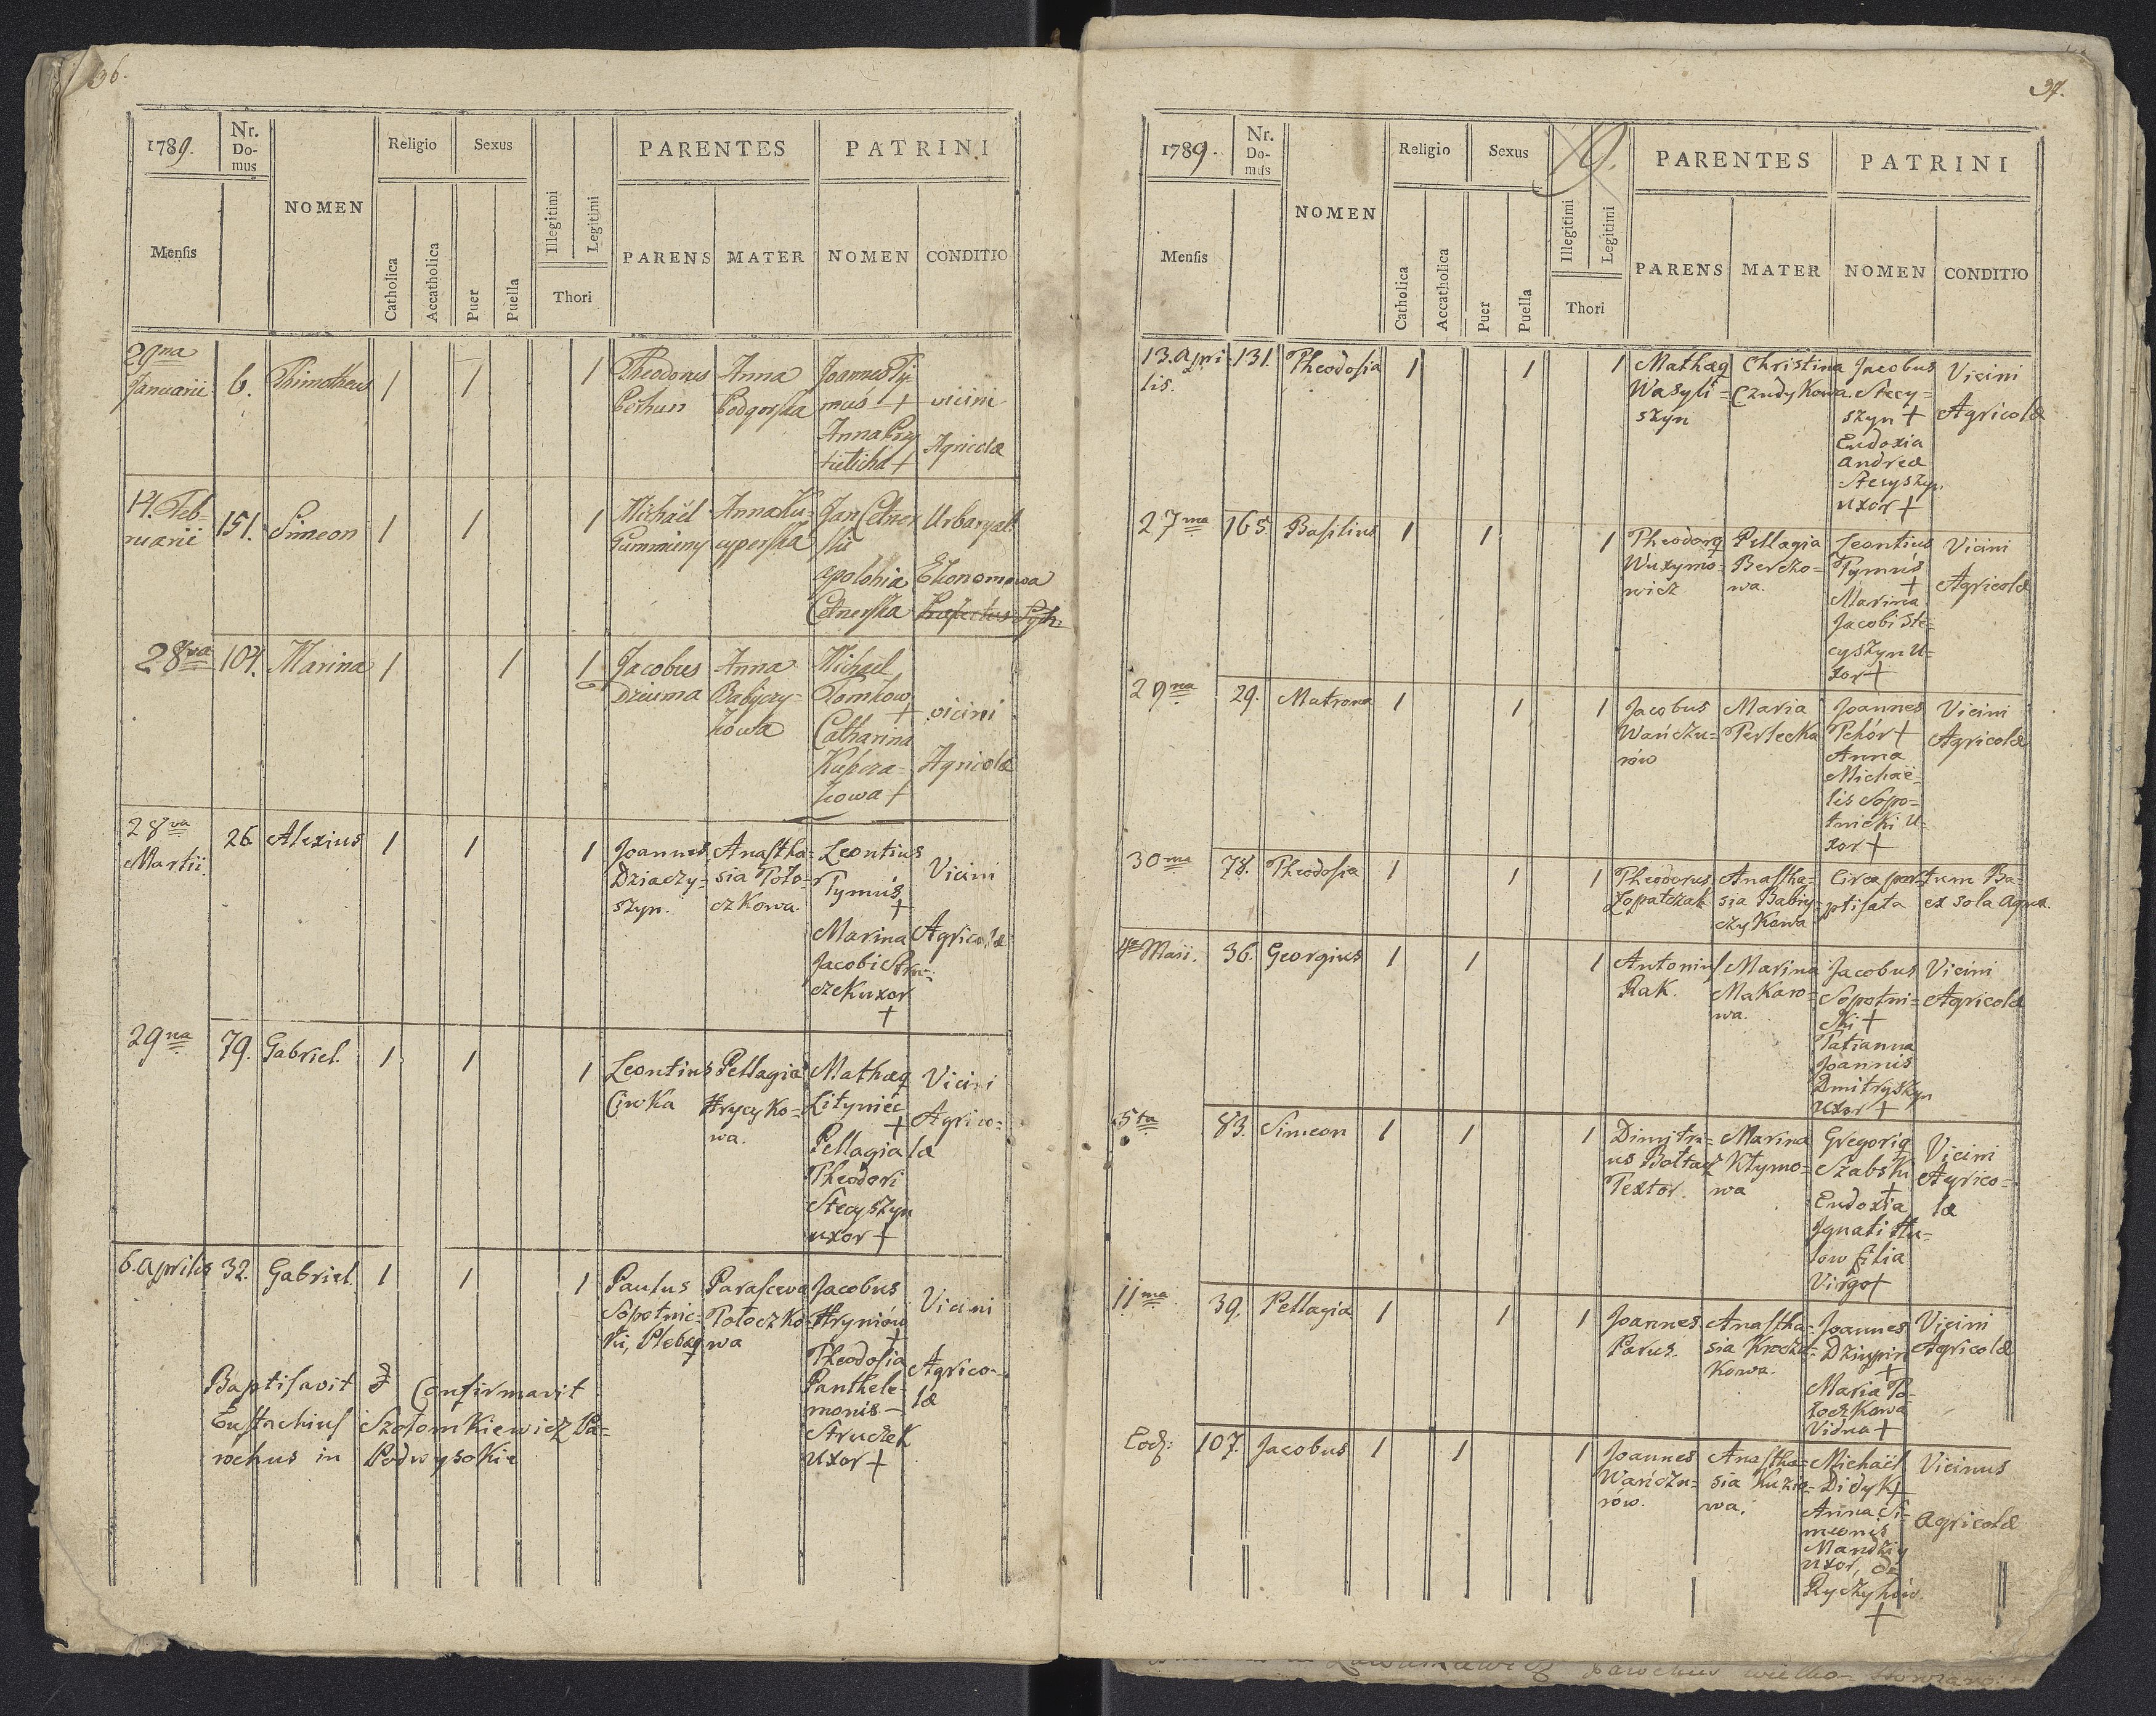 36.
1789.
Nr.
Do-
mus
NOMEN
Religio
Sexus
Illegitimi
Legitimi
PARENTES
PATRINI
Mensis
Catholica
Accatholica
Puer
Puella
Thori
PARENS
MATER
NOMEN
CONDITIO
29na Januarii
6.
Thimotheus
1
1
1
Theodorus
Anna Podgorska
Joannes Ty-
mus +
Anna
+
vicini
Agricolæ
14. Feb-
ruarii
151.
Simeon
1
1
1
Michaël
Gumnieny
Anna Ku-
cyperska
Jan Cetner
ski
apolonia
Cetnerska
Urbaryal:
Ekonomowa
28va
104.
Marina
1
1
1
Jacobus
Dziuma
Anna
Babijczy-
kowa
Michaël
Tomkow
+
Catharina
Kupcza-
kowa +
vicini
Agricolæ
28va
Martii
26
Alexius
1
1
1
Joannes
Dziaczy-
szyn.
Anastha-
sia Toło-
czkowa.
Leontius
Tymús
+
Marina
Jacobi Stru-
czek uxor
+
Vicini
Agricolæ
29na
79.
Gabriel.
1
1
1
Leontius
Ciwka
Pellagia
Hrycyko-
wa.
Mathæq
Lityniec
+
Pellagia
Theodori
Stecyszyn
uxor +
Vicini
Agrico=
læ
6. Aprilis
32.
Gabriel
1
1
1
Paulus
Sopotnic-
ki, Plebaq
Parascewa
Tołoczko-
wa
Jacobus
Hryniów
+
Theodosia
Panthele-
monis
Struczek
Uxor +
Vicini
Agrico-
læ
Baptisavit & Confirmavit
Eustachius Szołomkiewicz Pa-
rochus in Podwysokie
37.
1789.
Nr.
Do-
mus
NOMEN
Religio
Sexus
9.
Illegitimi
Legitimi
PARENTES
PATRINI
Mensis
Catholica
Accatholica
Puer
Puella
Thori
PARENS
MATER
NOMEN
CONDITIO
13. Apri-
lis.
131.
Theodosia
1
1
1
Mathæq
Wasyli=
szyn
Christina
Czudykowa.
Jacobus
Stecy=
szyn +
Eudoxia
Andreæ
Stecyszyn
uxor +
Vicini
Agricolæ
27ma
165.
Basilius
1
1
1
Theodorq
Wuxymo-
wicz
Pellagia
Berezo=
wa.
Leontius
Tymús
+
Marina
Jacobi Ste-
cyszyn u-
xor +
Vicini
Agricolæ
29na
29.
Matrona
1
1
1
Jacobus
Wańczu-
rów
Maria
Perlecka
Joannes
Tchór +
Anna
Michaë-
lis Sopo-
tnicki u-
xor +
Vicini
Agricolæ
30ma
78.
Theodosia
1
1
1
Theodorus
Łopatczak
Anastha-
sia Babiy-
czykowa
Circa partum Ba-
ptisata ex sola aqua.
4ta Maii.
36.
Georgius
1
1
1
Antonius
Rak.
Marina
Makaro=
wa.
Jacobus
Sopotni=
ski +
Tatianna
Joannis
Dmitryszyn
Uxor +
Vicini
Agricolæ
5ta
83.
Simeon
1
1
1
Dimitri=
us Bałtaq
Textor.
Marina
Kłymo=
wa
Gregoriq
Szabski
+
Eudoxia
Ignati Hu-
low filia
Virgo +
Vicini
Agrico=
læ
11ma
39.
Pellagia
1
1
1
Joannes
Parus.
Anastha-
sia
kowa.
Joannes
Dziupin
+
Maria To-
łoczkowa
Vidua +
Vicini
Agricolæ
Eod:
107.
Jacobus
1
1
1
Joannes
Wańczu-
rów.
Anastha-
sia Kuzio-
wa.
Michaël
Didyk +
Anna Si-
meonis
Mandziy
uxor, de
Ryczyhów.
+
Vicinus
Agricolæ